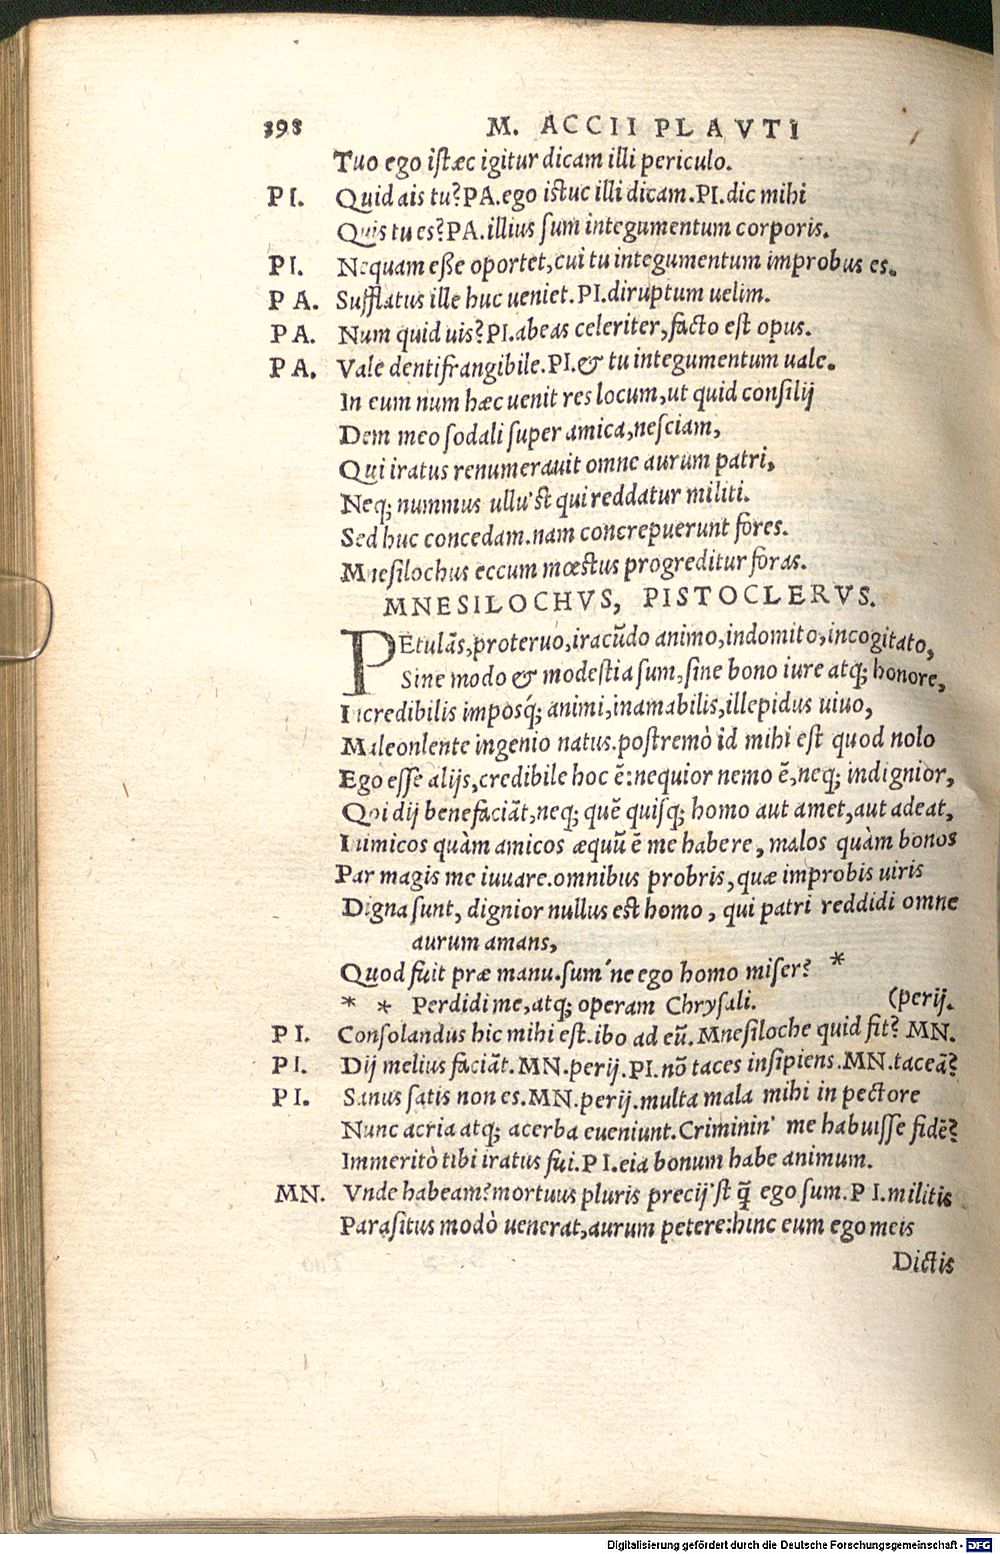 398 M. ACCII PLAVTI
Tuo ego istæc igitur dicam illi periculo.
PI. Quid ais tu? PA. ego istuc illi dicam. PI. dic mihi
Quis tu es? PA. illius sum integumentum corporis.
PI. Nequam eße oportet, cui tu integumentum improbus es.
PA. Sufflatus ille huc ueniet. PI. diruptum uelim.
PA. Num quid uis? PI. abeas celeriter, facto est opus.
PA. Vale dentifrangibile. PI. & tu integumentum uale.
In eum num hæc uenit res locum, ut quid consilij
Dem meo sodali super amica, nesciam,
Qui iratus renumerauit omne aurum patri,
Neq; nummus ullu'st qui reddatur militi.
Sed huc concedam. nam concrepuerunt fores.
Mnesilochus eccum mœstus progreditur foras.
MNESILOCHVS, PISTOCLERVS.
PEtulās, proteruo, iracūdo animo, indomito, incogitato,
Sine modo & modestia sum, sine bono iure atq; honore,
Incredibilis imposq́; animi, inamabilis, illepidus uiuo,
Maleonlente ingenio natus. postremò id mihi est quod nolo
Ego esse alijs, credibile hoc ē: nequior nemo ē, neq; indignior,
Qoi dij benefaciāt, neq; quē quisq; homo aut amet, aut adeat,
Inimicos quàm amicos æquū ē me habere, malos quàm bonos
Par magis me iuuare. omnibus probris, quæ improbis uiris
Digna sunt, dignior nullus est homo, qui patri reddidi omne
aurum amans,
Quod fuit præ manu. sum'ne ego homo miser? *
* * Perdidi me, atq; operam Chrysali. (perij.
PI. Consolandus hic mihi est. ibo ad eū. Mnesiloche quid fit? MN.
PI. Dij melius faciāt. MN. perij. PI. nō taces insipiens. MN. taceā?
PI. Sanus satis non es. MN. perij. multa mala mihi in pectore
Nunc acria atq; acerba eueniunt. Criminin' me habuisse fidē?
Immeritò tibi iratus fui. PI. eia bonum habe animum.
MN. Vnde habeam? mortuus pluris precij'st q̄ ego sum. PI. militis
Parasitus modò uenerat, aurum petere: hinc eum ego meis
Dictis
Digitalisierung gefördert durch die Deutsche Forschungsgemeinschaft - DFG